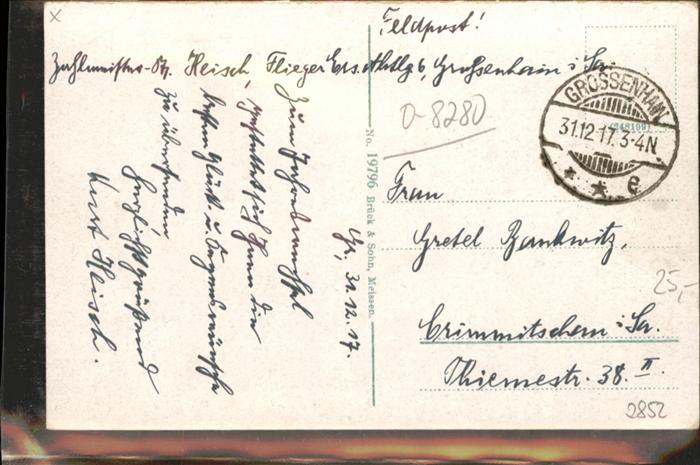 Feldpost!
Zahlmeister-St. Heisch, Flieger Ers. Abtlg. 6, Grossenhain i. Sa.
GROSSENHAIN
31.12.17. 3-4N
* * e
0-8280
Gr., 31.12.17.
Zum Jahreswechsel
gestattet sich Ihnen die
besten Glück u. Segenswünsche
zu übersenden
herzlichst grüßend
Kurt Heisch.
No. 19796 Brück & Sohn, Meissen.
Frau
Gretel Bankwitz,
Crimmitschau i. Sa.
Thiemestr. 38. II.
25,-
2852